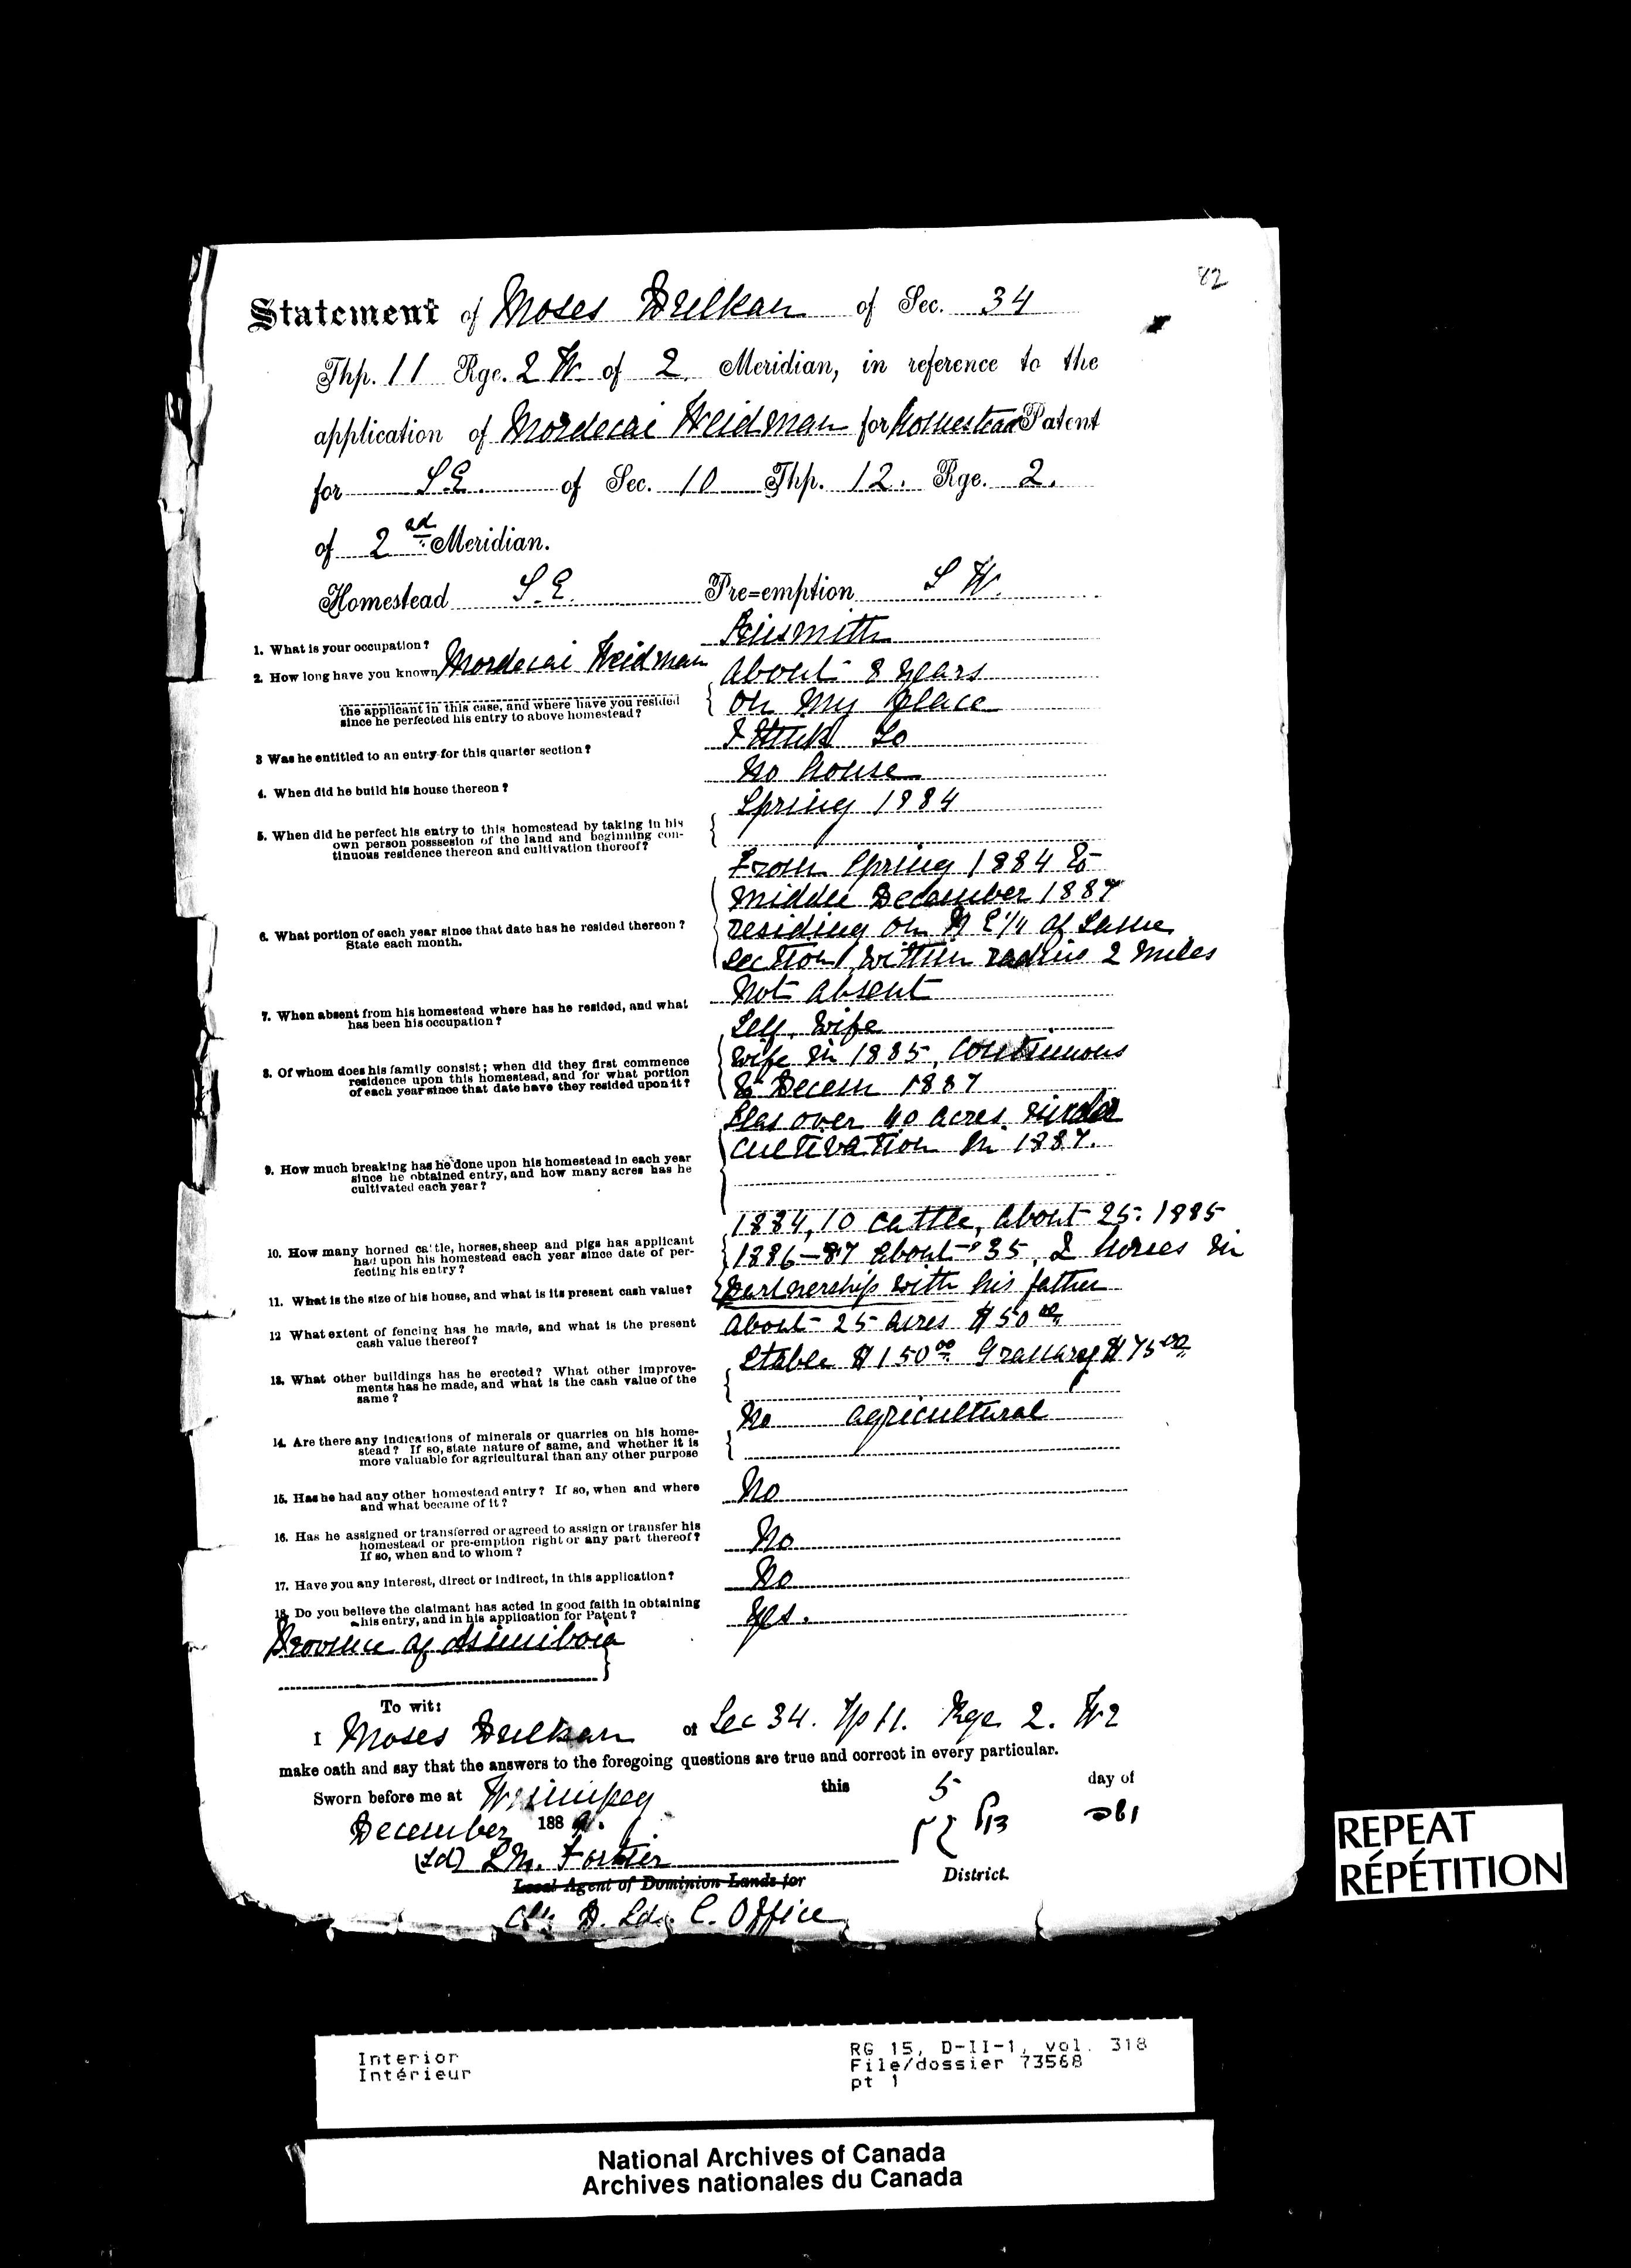 82
Statement of Moses Drelkan of Sec. 34
Thp. 11 Rge. 2 W. of 2. Meridian, in reference to the
application of Mordecai Weidman for Homestead Patent
for S.E. of Sec. 10 Thp. 12. Rge. 2.
of 2nd Meridian.
Homestead S.E. Pre=emption S W.
1. What is your occupation? Tinsmith
2. How long have you known Mordecai Weidman About 8 years
the applicant in this case, and where have you resided On my place
since he perfected his entry to above homestead?
3 Was he entitled to an entry for this quarter section? I think so
4. When did he build his house thereon? No house
5. When did he perfect his entry to this homestead by taking in his Spring 1884
own person posssesion of the land and beginning con-
tinuous residence thereon and cultivation thereof?
From Spring 1884 to
middle December 1887
6. What portion of each year since that date has he resided thereon? residing on N E 1/4 of same
State each month. section within radius 2 miles
7. When absent from his homestead where has he resided, and what Not absent
has been his occupation?
Self, wife
8. Of whom does his family consist; when did they first commence wife in 1885, continuous
residence upon this homestead, and for what portion to Decem 1887
of each year since that date have they resided upon it?
Has over 40 acres under
9. How much breaking has he done upon his homestead in each year cultivation in 1887.
since he obtained entry, and how many acres has he
cultivated each year?
1884, 10 cattle, about 25. 1885
10. How many horned cattle, horses, sheep and pigs has applicant 1886-87 about 35, 2 horses in
had upon his homestead each year since date of per-
fecting his entry?
11. What is the size of his house, and what is its present cash value? partnership with his father
12 What extent of fencing has he made, and what is the present About 25 acres $50 00
cash value thereof?
13. What other buildings has he erected? What other improve- Stable $150 00 Granary $75 00
ments has he made, and what is the cash value of the
same?
14. Are there any indications of minerals or quarries on his home- No agricultural
stead? If so, state nature of same, and whether it is
more valuable for agricultural than any other purpose
15. Has he had any other homestead entry? If so, when and where No
and what became of it?
16. Has he assigned or transferred or agreed to assign or transfer his No
homestead or pre-emption right or any part thereof?
If so, when and to whom?
17. Have you any interest, direct or indirect, in this application? No
18. Do you believe the claimant has acted in good faith in obtaining Yes.
his entry, and in his application for Patent?
Province of Assiniboia
To wit:
I Moses Drelkan of Sec 34. Tp 11. Rge. 2. W2
make oath and say that the answers to the foregoing questions are true and correct in every particular.
Sworn before me at Winnipeg this 5 day of
December 188
(Sd) L.M. Fortier
Local Agent of Dominion Lands for District.
D. Lds. C. Office
REPEAT
RÉPÉTITION
Interior
Intérieur
RG 15, D-II-1, vol. 318
File/dossier 73568
pt 1
National Archives of Canada
Archives nationales du Canada